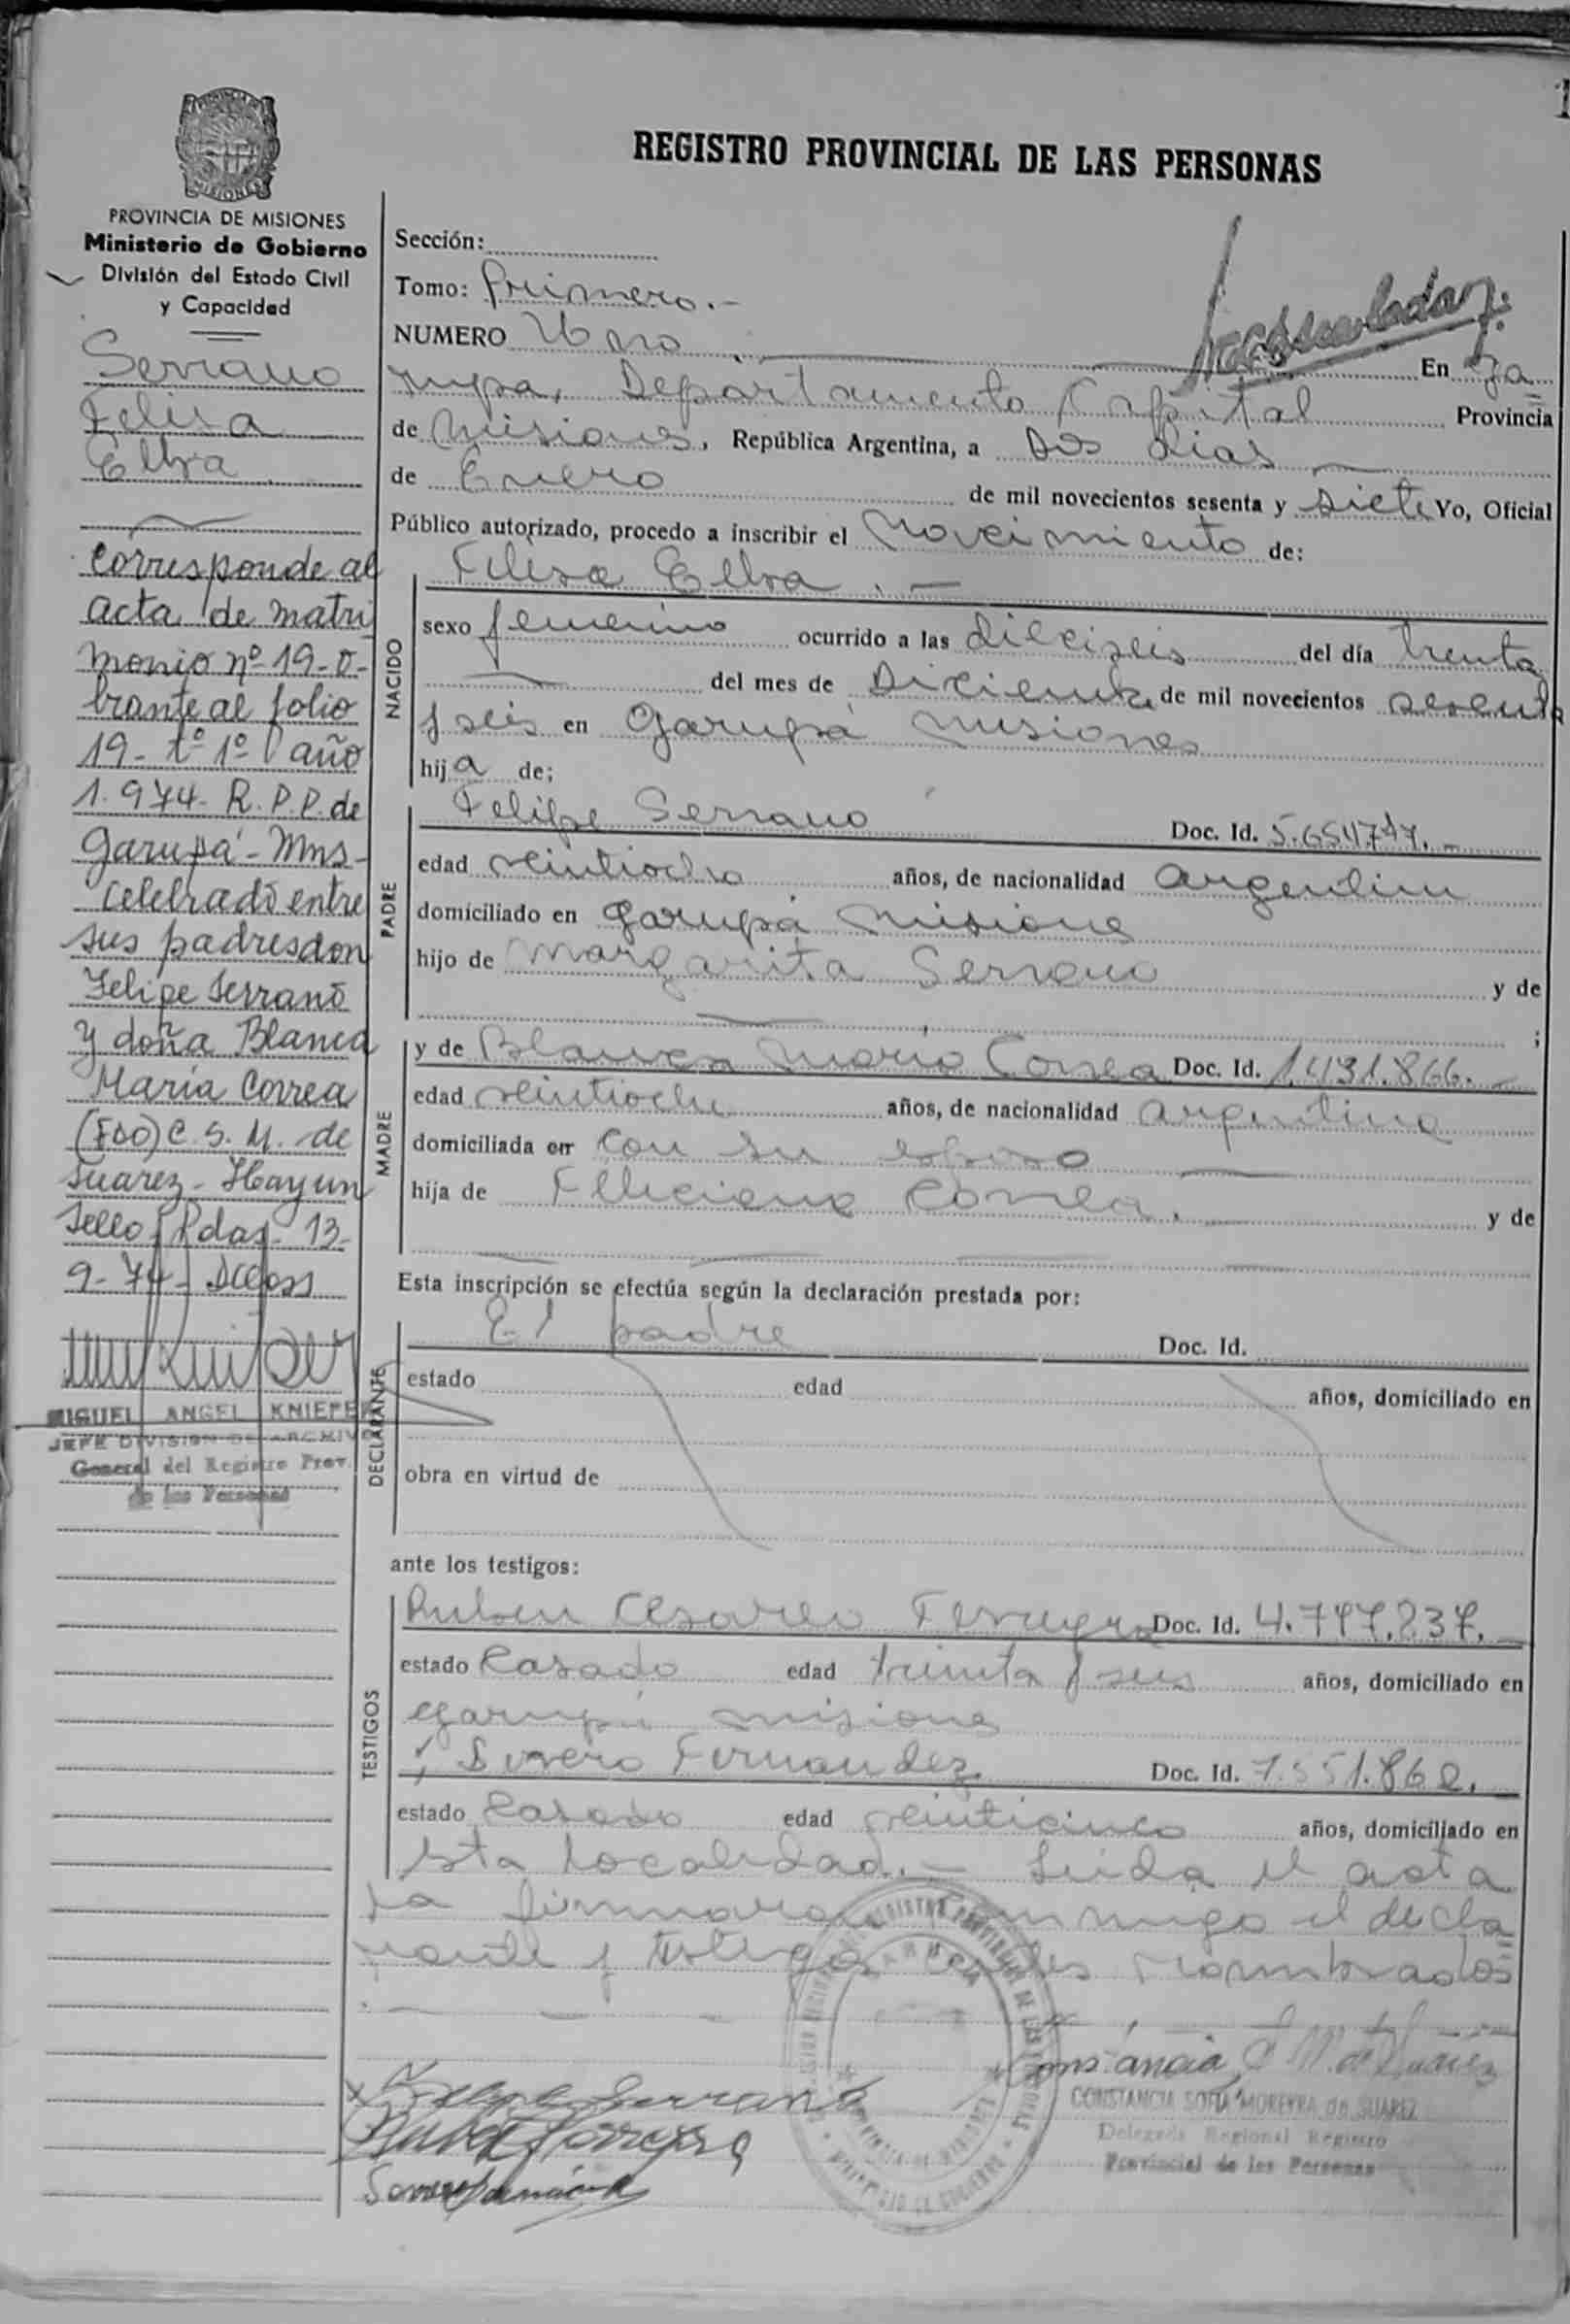 REGISTRO PROVINCIAL DE LAS PERSONAS
PROVINCIA DE MISIONES
Ministerio de Gobierno
División del Estado Civil
y Capacidad
Serrano
Felisa
Elba
Corresponde al
acta de matri
monio nº 19-O-
brante al folio
19- tº 1º año
1.974- R.P.P. de
Garupá- Mns-
Celebrado entre
sus padres don
Felipe Serrano
y doña Blanca
María Correa
(FDO) C. S. M. de
Suarez- Hay un
Sello. Pdas- 13-
9- 74-
MIGUEL ANGEL KNIEFER
JEFE DIVISION DE ARCHIVO
General del Registro Prov.
de las Personas
Sección:
Tomo: Primero.-
NUMERO Uno En Ga
rupa, Departamento Capital Provincia
de Misiones, República Argentina, a Dos dias
de Enero de mil novecientos sesenta y siete Yo, Oficial
Público autorizado, procedo a inscribir el nacimiento de:
NACIDO
Felisa Elba.-
sexo femenino ocurrido a las dieciseis del día trenta
del mes de Diciembre de mil novecientos sesenta
y seis en Garupá Misiones
hija de;
PADRE
Felipe Serrano Doc. Id.
edad veintiocho años, de nacionalidad argentin
domiciliado en Garupá Misiones
hijo de Margarita Serrano y de
;
MADRE
y de Blanca Maria Correa Doc. Id. 1.431.866.-
edad veintiocho años, de nacionalidad argentina
domiciliada en con su esposo
hija de Feliciana Correa. y de
Esta inscripción se efectúa según la declaración prestada por:
DECLARANTE
El padre Doc. Id.
estado edad años, domiciliado en
obra en virtud de
ante los testigos:
TESTIGOS
Ruben Cesareo Ferreyra Doc. Id. 4.747.237.-
estado Casado edad treinta y seis años, domiciliado en
Garupá Misiones
y Severo Fernandez Doc. Id. 7.551.862.
estado Casado edad veinticinco años, domiciliado en
esta localidad.- Leida el acta
la firmaron conmigo el decla
rante y testigos nombrados
Felipe Serrano
Ruben Ferreyra
Constancia S. M. de Suarez
CONSTANCIA SOFIA MOREYRA de SUAREZ
Delegada Regional Registro
Provincial de las Personas